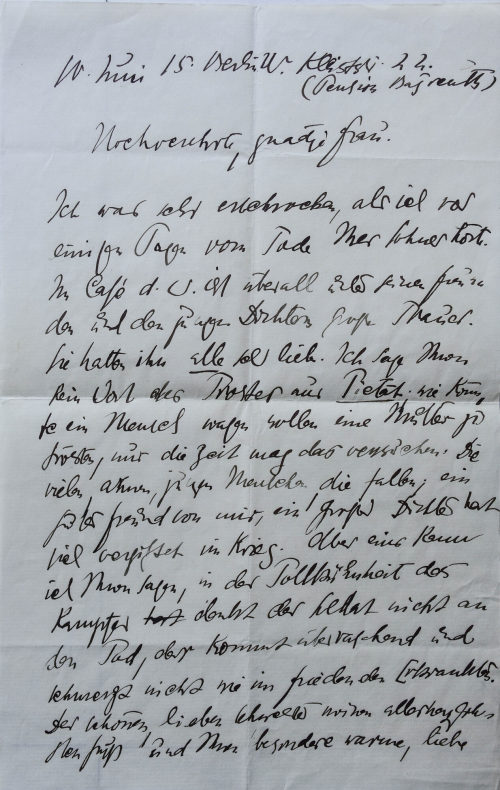 10. Juni 15. Berlin W. Kleiststr. 22.
(Pension Bayreuth)
Hochverehrte, gnädige Frau.
Ich war sehr erschrocken, als ich vor
einigen Tagen vom Tode Ihres Sohnes hörte.
Im Café d. W. ist überall unter seinen Freun
den und den jungen Dichtern große Trauer.
Sie hatten ihn alle so lieb. Ich sage Ihnen
kein Wort des Trostes aus Pietät, wie könn
te ein Mensch wagen wollen eine Mutter zu
trösten, nur die Zeit mag das versuchen. Die
vielen armen, jungen Menschen die fallen; ein
guter Freund von mir, ein großer Dichter hat
sich vergiftet im Krieg. Aber eins kann
ich Ihnen sagen, in der Tollkühnheit des
Kampfes denkt der Soldat nicht an
den Tod, der kommt überraschend und
schmerzt nicht wie im Frieden den Erkrankten.
Der schönen, lieben Schwester meinen allerherzlich
sten Gruß und Ihnen besonders warme, liebe